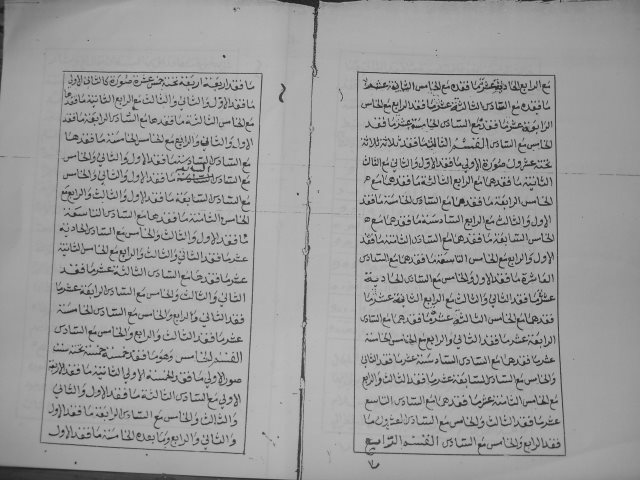 مع الرابع الحادية عشر ما فقده مع الخامس الثانية عشر
ما فقده مع السادس الثالثة عشر ما فقد الرابع مع الخامس
الرابعة عشر ما فقد مع السادس الخامسة عشر ما فقد
الخامس مع السادس القسم الثالث ثلاثة ثلاثة
تحته عشرون صورة الاولى ما فقد الاول والثاني مع الثالث
الثانية ما فقدهما مع الرابع الثالثة ما فقدهما مع
الخامس الرابعة ما فقدهما مع السادس الخامسة ما فقد
الاول والثالث مع الرابع السادسة ما فقدهما مع
الخامس السابعة ما فقدهما مع السادس الثامنة ما فقد
الاول والرابع مع الخامس التاسعة ما فقدهما مع السادس
العاشرة ما فقد الاول والخامس مع السادس الحادية
عشر ما فقد الثاني والثالث مع الرابع الثانية عشر ما
فقدهما مع الخامس الثالثة عشر ما فقدهما مع السادس
الرابعة عشر ما فقد الثاني والرابع مع الخامس الخامسة
عشر ما فقدهما مع السادس السادسة عشر ما فقد الثاني
والخامس مع السادس السابعة عشر ما فقد الثالث والرابع
مع الخامس الثامنة عشر ما فقدهما مع السادس التاسع
عشر ما فقد الثالث والخامس مع السادس العشرون ما
فقد الرابع والخامس مع السادس القسم الرابع
ما فقد اربعة اربعة تحته خمس عشرة صورة الاولى
ما فقد الاول والثاني والثالث مع الرابع الثانية ما فقدها
مع الخامس الثالثة ما فقدها مع السادس الرابعة ما فقد
الاول والثاني والرابع مع الخامس الخامسة ما فقدها
مع السادس السادسة ما فقد الاول والثاني والخامس
مع السادس السابعة ما فقد الاول والثالث والرابع مع
الخامس الثامنة ما فقدها مع السادس التاسعة
ما فقد الاول والثالث والخامس مع السادس الحادية
عشر ما فقد الثاني والثالث والرابع مع الخامس الثانية
عشر ما فقدها مع السادس الثالثة عشر ما فقد
الثاني والثالث والخامس مع السادس الرابعة عشر ما
فقد الثاني والرابع والخامس مع السادس الخامسة
عشر ما فقد الثالث والرابع والخامس مع السادس
القسم الخامس وهو ما فقد خمسة خمسة تحته ست
صور الاولى ما فقد الخمسة الاولى الثانية ما فقد الاربعة
الاولى مع السادس الثالثة ما فقد الاول والثاني
والثالث والخامس مع السادس الرابعة ما فقد الاول
والثاني والرابع وما بعده الخامسة ما فقد الاول